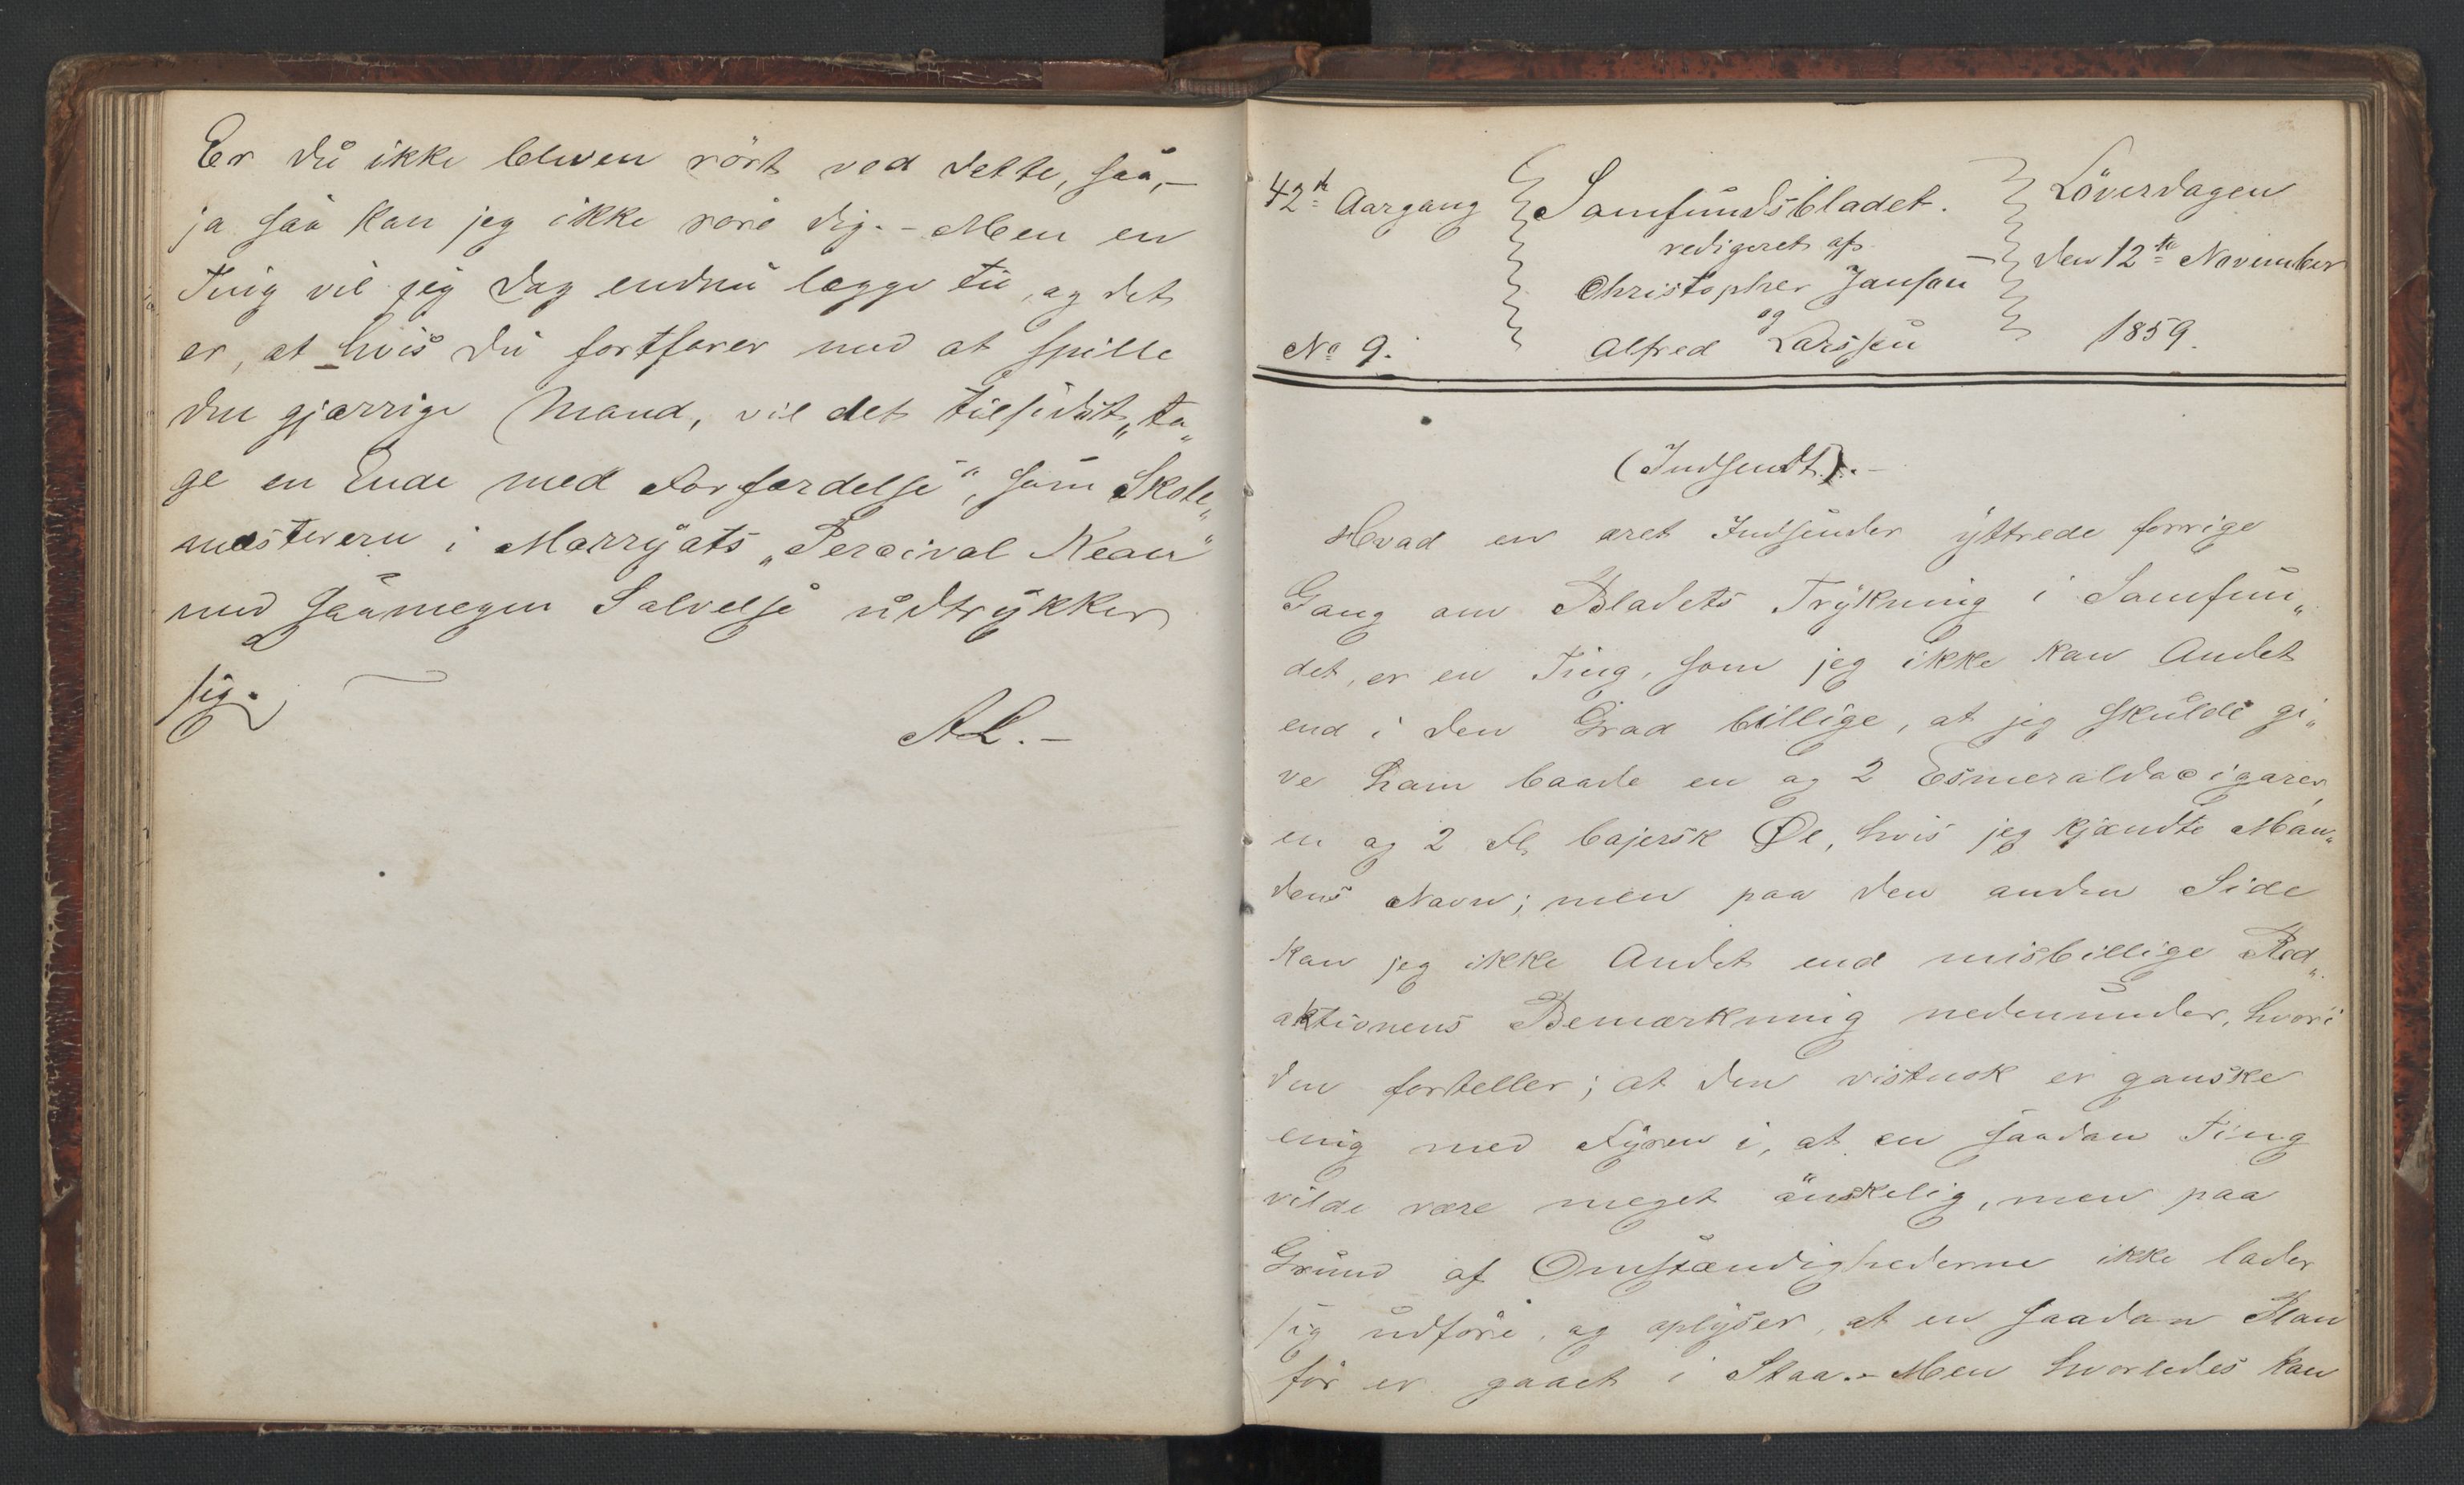 Er du ikke bleven rört ved dette, saa,-
ja saa kan jeg ikke röre dig. - Men en
Ting vil jeg dog endnu lægge til, og det
er, at hvis du fortfarer med at spille
den gjærrige Mand, vil det tilsidst „ta„
ge en Ende med Forfærdelse“, som Skole„
mesteren i Marryats „Percival Kean“
med saamegen Salvelse udtrykker
sig.
A L. -
42de Aargang
No 9.
Samfundsbladet.
redigeret af
Christopher Janson
og
Alfred Larssen
Löverdagen
den 12te November
1859.
(Indsendt). -
Hvad en æret Indsender yttrede forrige
Gang om Bladets Trykning i Samfun„
det, er en Ting, som jeg ikke kan Andet
end i den Grad billige, at jeg skulde gi„
ve ham baade en og 2 Esmeraldacigarer,
en og 2 Fl bajersk Øl, hvis jeg kjendte Man„
dens Navn; men paa den anden Side
kan jeg ikke Andet end misbillige Red„
aktionens Bemærkning nedenunder, hvori
den forteller; at den vistnok er ganske
enig med Fyren i, at en saadan Ting
vilde være meget önskelig, men paa
Grund af Omstændighederne ikke lader
sig udföre, og oplyser, at en saadan Plan
för er gaaet i Staa. - Men hvorledes kan